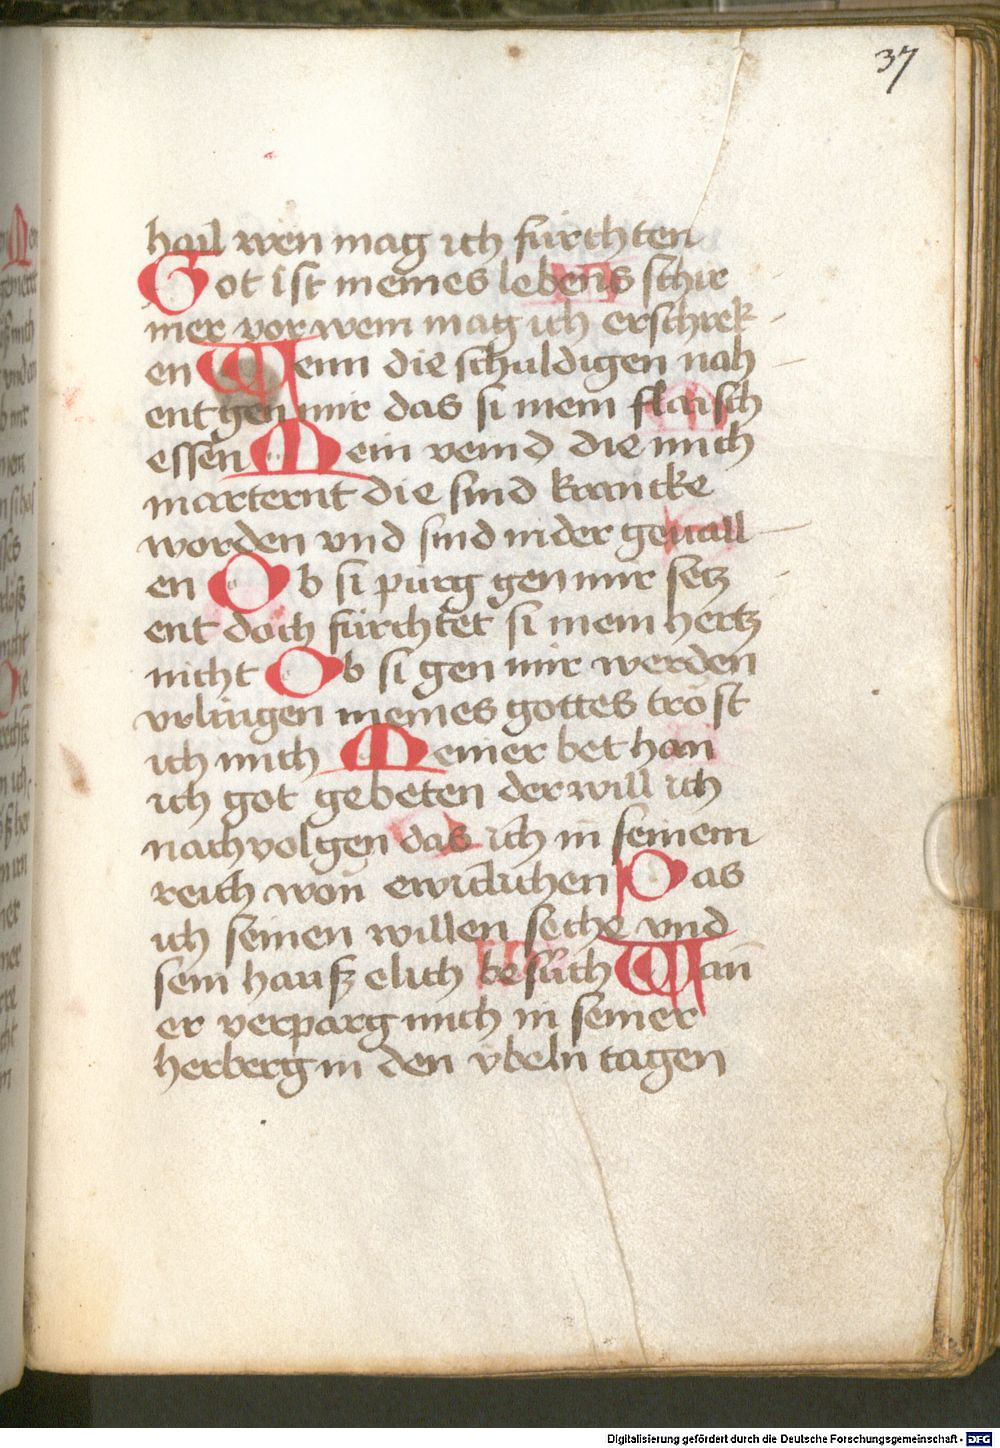 37
hail wen mag ich fürchten
Got ist meines lebens schir
mer vor wem mag ich erschrek
en Wenn die schuldigen nah
ent gen mir das si mein flaisch
essen Mein veind die mich
marternt die sind krancke
worden vnd sind nider geuall
en Ob si purg gen mir setz
ent doch fürchtet si mein hertz
nicht Ob si gen mir werden
vrlingen meines gottes tröst
ich mich Meiner bet han
ich got gebeten der will ich
nachvolgen das ich in seinem
reich won ewiclichen Das
ich seinen willen seche vnd
sein hauſz elich besüch Wan̄
er verparg mich in seiner
herberg in den vbeln tagen
Digitalisierung gefördert durch die Deutsche Forschungsgemeinschaft - DFG